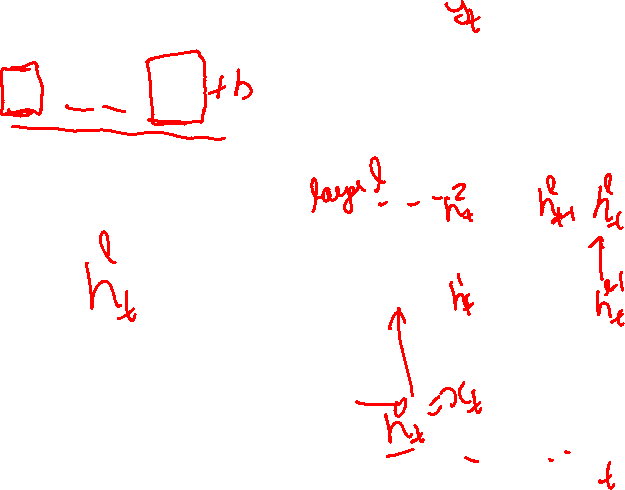 y_t
+ b
layer l - - h_t^2 h_{t-1}^l h_t^l
h_t^l
h_t^1 h_t^{l-1}
h_t^0 = x_t
t